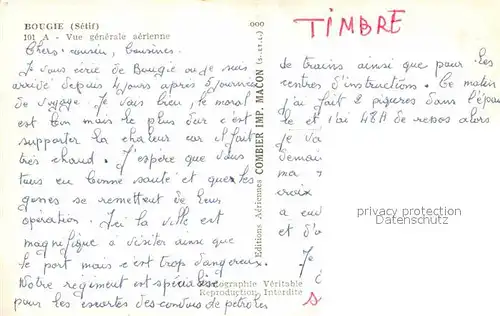 BOUGIE (Sétif)
101 A - Vue générale aérienne
Chers cousin, Cousines.
Je vous écrie de Bougie ou je suis
arrivé depuis 4 jours après 5 journées
de voyage. Je vais bien, le moral
est bon mais le plus dur c'est
supporter la chaleur car il fait
très chaud. J'espère que vous
tous en bonne santé et que les
gosses se remettent de leur
opération. Ici la ville est
magnifique a visiter ainsi que
le port mais c'est trop dangereux.
Notre regiment est spécialisé
pour les escortes des
Editions Aériennes COMBIER IMP. MACON (S.-et-L.)
Photographie Véritable
Reproduction Interdite
TIMBRE
de trains ainsi que pour les
centres d'instructions. Ce matin
j'ai fait 2 piqures dans l'épau
le et j'ai 48H de repos alors
je va
demai
ma
croix
a eu
et d'a
Je
privacy protection
Datenschutz